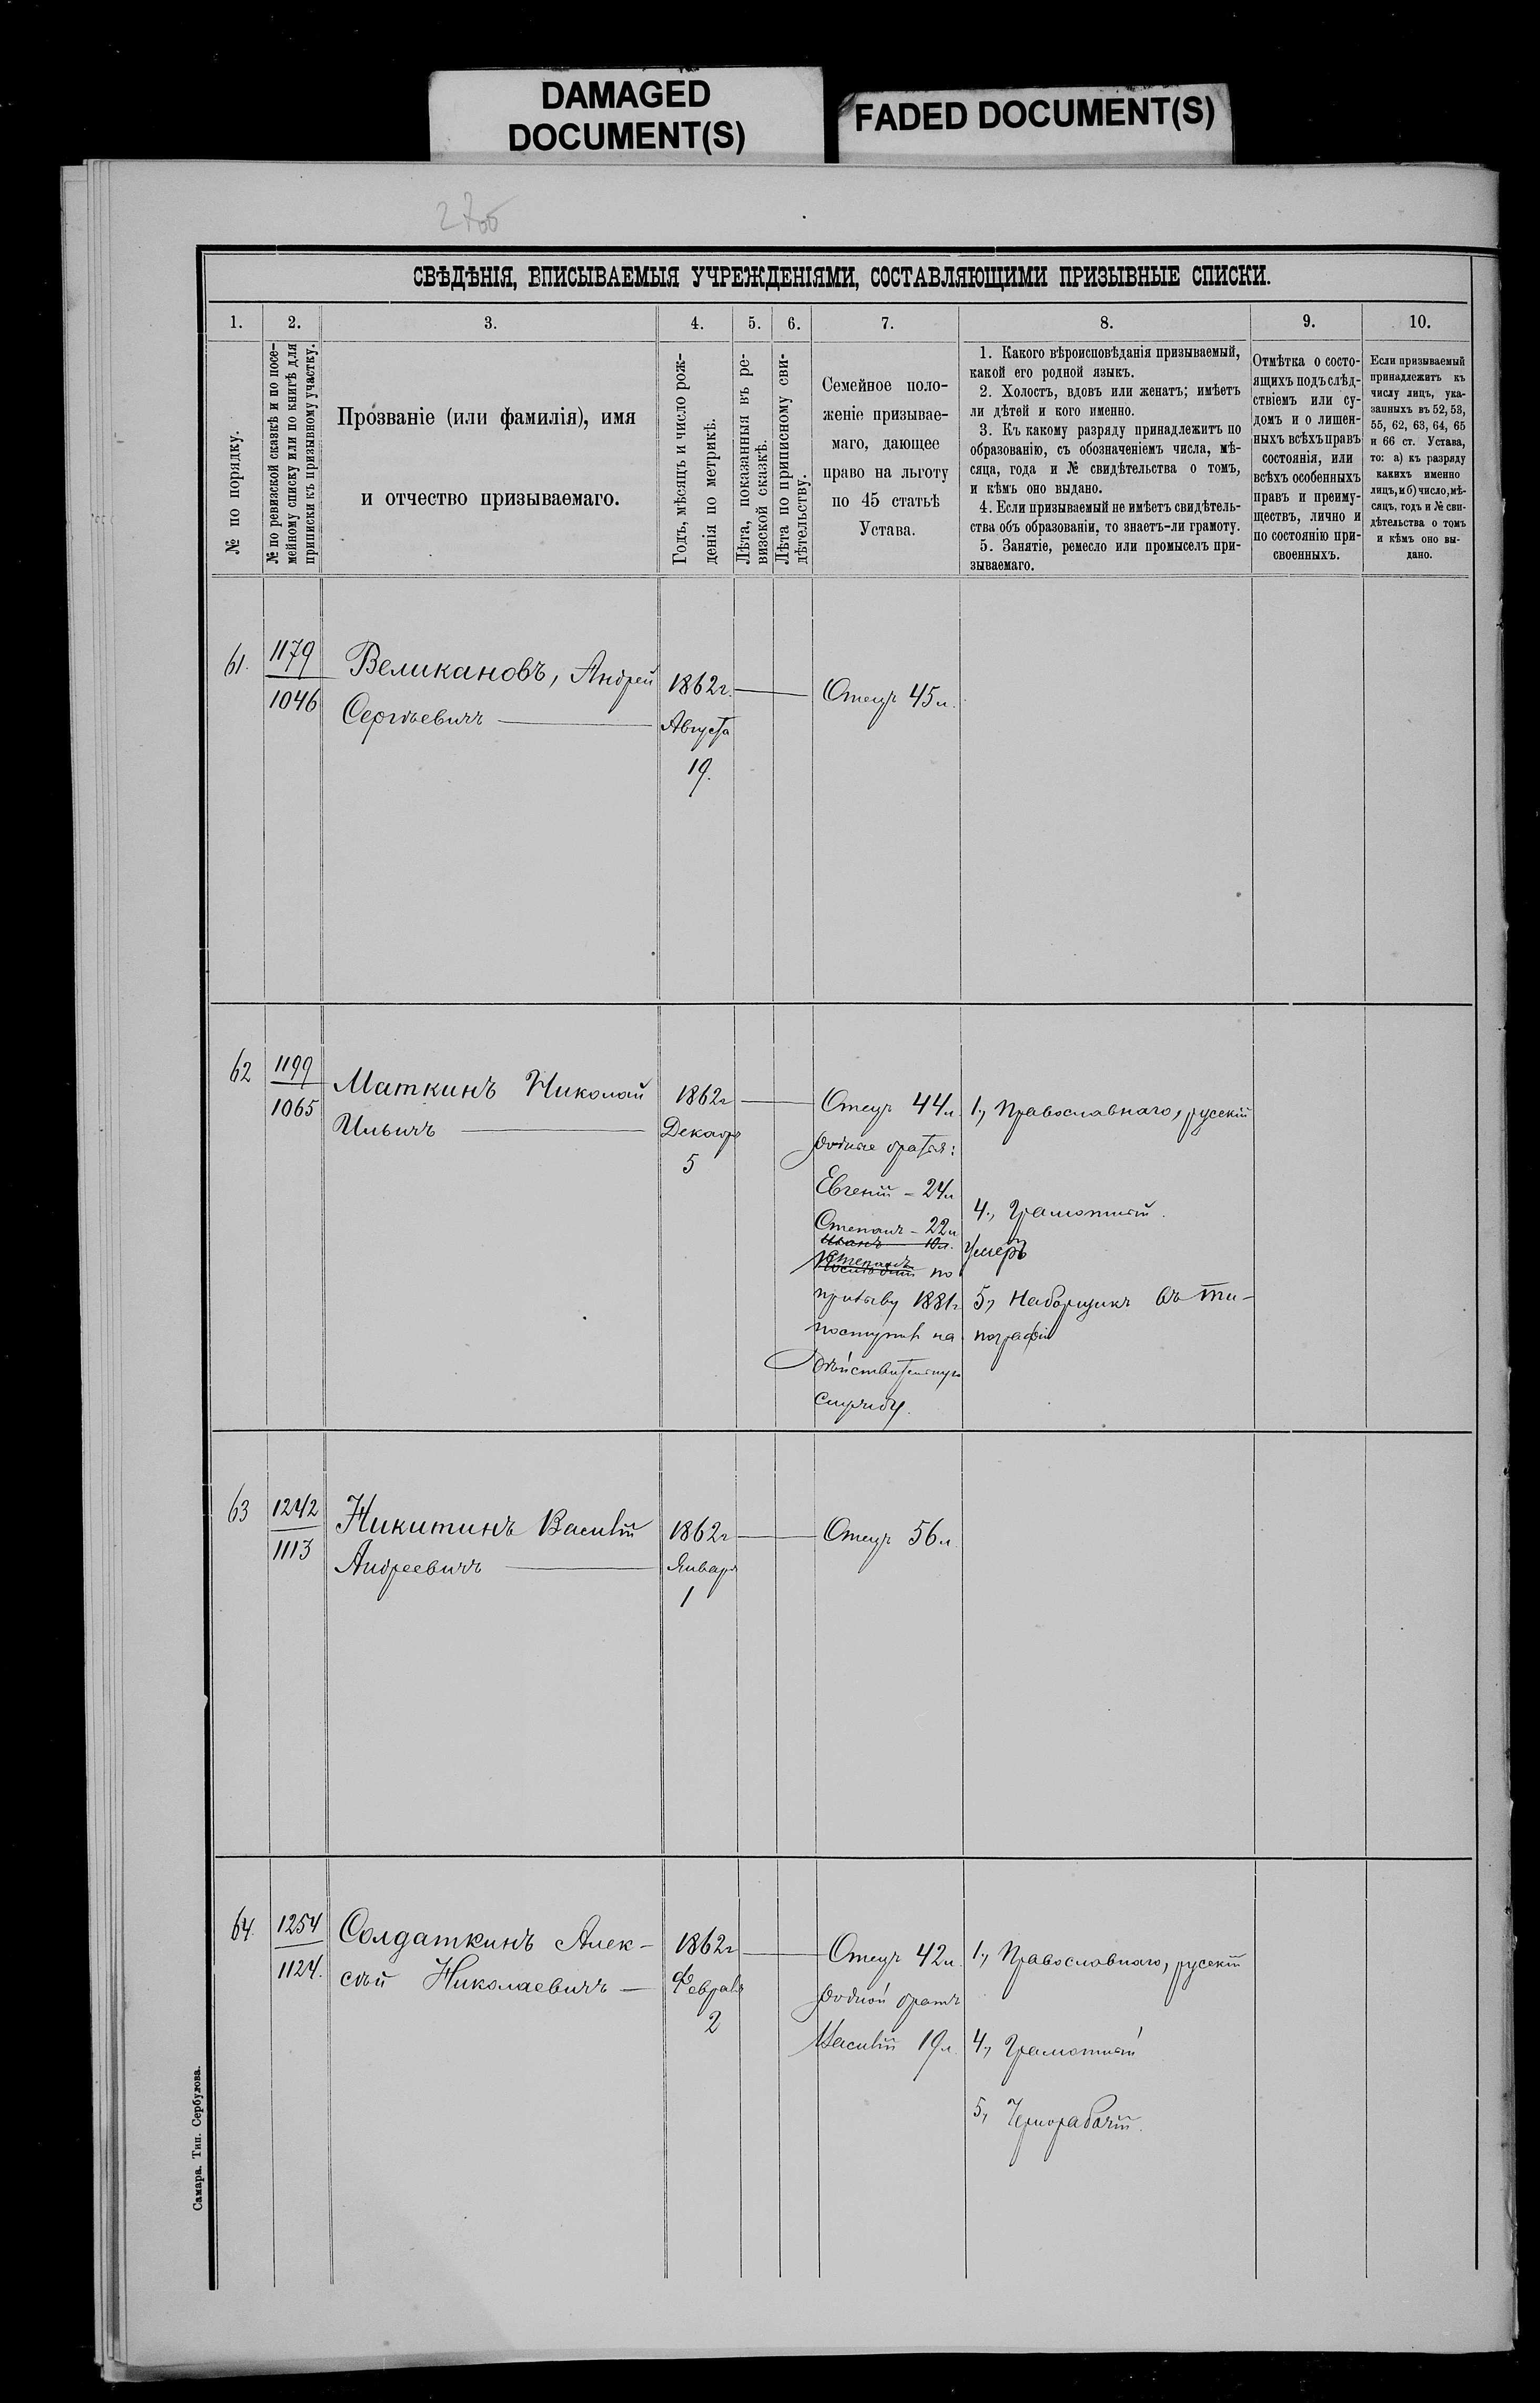 DAMAGED
DOCUMENT(S)
FADED DOCUMENT(S)
СВѢДѢНІЯ, ВПИСЫВАЕМЫЯ УЧРЕЖДЕНІЯМИ, СОСТАВЛЯЮЩИМИ ПРИЗЫВНЫЕ СПИСКИ.
1.
2.
3.
4.
5.
6.
7.
8.
9.
10.
№ по порядку.
№ по ревизской сказкѣ и по посе-
мейному списку или по книгѣ для
приписки къ призывному участку.
Прозваніе (или фамилія), имя
и отчество призываемаго.
Годъ, мѣсяцъ и число рож-
денія по метрикѣ.
Лѣта, показанныя въ ре-
визской сказкѣ.
Лѣта по приписному сви-
дѣтельству.
Семейное поло-
женіе призывае-
маго, дающее
право на льготу
по 45 статьѣ
Устава.
1. Какого вѣроисповѣданія призываемый,
какой его родной языкъ.
2. Холостъ, вдовъ или женатъ; имѣетъ
ли дѣтей и кого именно.
3. Къ какому разряду принадлежитъ по
образованію, съ обозначеніемъ числа, мѣ-
сяца, года и № свидѣтельства о томъ,
и кѣмъ оно выдано.
4. Если призываемый не имѣетъ свидѣтель-
ства объ образованіи, то знаетъ-ли грамоту.
5. Занятіе, ремесло или промыселъ при-
зываемаго.
Отмѣтка о состо-
ящихъ подъ слѣд-
ствіемъ или су-
домъ и о лишен-
ныхъ всѣхъ правъ
состоянія, или
всѣхъ особенныхъ
правъ и преиму-
ществъ, лично и
по состоянію при-
своенныхъ.
Если призываемый
принадлежитъ къ
числу лицъ, ука-
занныхъ въ 52, 53,
55, 62, 63, 64, 65
и 66 ст. Устава,
то: а) къ разряду
какихъ именно
лицъ, и б) число, мѣ-
сяцъ, годъ и № сви-
дѣтельства о томъ
и кѣмъ оно вы-
дано.
61.
1179
1046
Великановъ, Андрей
Сергѣевичъ
1862г.
Августа
19.
Отецъ 45л.
62
1199
1065
Маткинъ Николай
Ильичъ
1862г
Декабр
5
Отецъ 44л.
родные братья:
Евгеній - 24л
Степанъ - 22л
Иванъ 10л.
Степанъ
по
призыву 1881г
поступилъ на
дѣйствительную
службу.
1., Православнаго, русскій
4., Грамотный.
Умеръ
5., Наборщикъ въ ти-
пографіи
63
1242
1113
Никитинъ Василій
Андреевичъ
1862г
Января
1
Отецъ 56л.
64.
1254
1124.
Солдаткинъ Алек-
сѣй Николаевичъ
1862г
Февраля
2
Отецъ 42л.
родной братъ
Василій 19л.
1., Православнаго, русскій
4., Грамотный
5., Чернорабочій.
Самара. Тип. Сербулова.